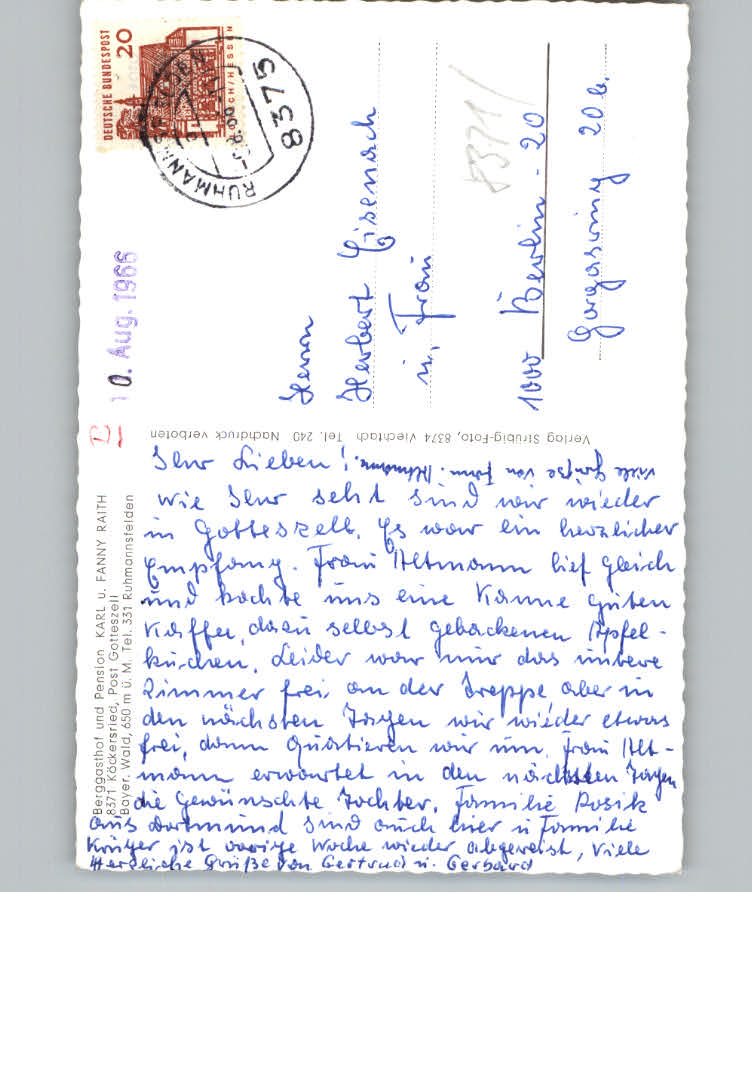 DEUTSCHE BUNDESPOST
20
LORSCH/HESSEN
8375
RUHMANNSFELDEN
-5.8.66
10. Aug. 1966
8371
Herrn
Herbert Eisenach
u. Frau
1000 Berlin - 20
20 b.
Verlag Strubig-Foto, 8374 Viechtach Tel. 240 Nachdruck verboten
Berggasthof und Pension KARL u. FANNY RAITH
8371 Köckersried, Post Gotteszell
Bayer. Wald, 650 m ü. M. Tel. 331 Ruhmannsfelden
Ihr Lieben!
viele Grüße von Fam. Altmann.
Wie Ihr seht sind wir wieder
in Gotteszell. Es war ein herzlicher
Empfang. Frau Altmann lief gleich
und kochte uns eine Kanne guten
Kaffee, dazu selbst gebackenen Apfel-
kuchen. Leider war nur das untere
Zimmer frei, an der Treppe, aber in
den nächsten Tagen wir wieder etwas
frei, dann Quartieren wir um. Frau Alt-
mann erwartet in den nächsten Tagen
die Gewünschte Tochter. Familie Rosik
aus Dortmund sind auch hier u Familie
Krüger ist vorige Woche wieder abgereist, Viele
Herzliche Grüße von Gertrud u. Gerhard